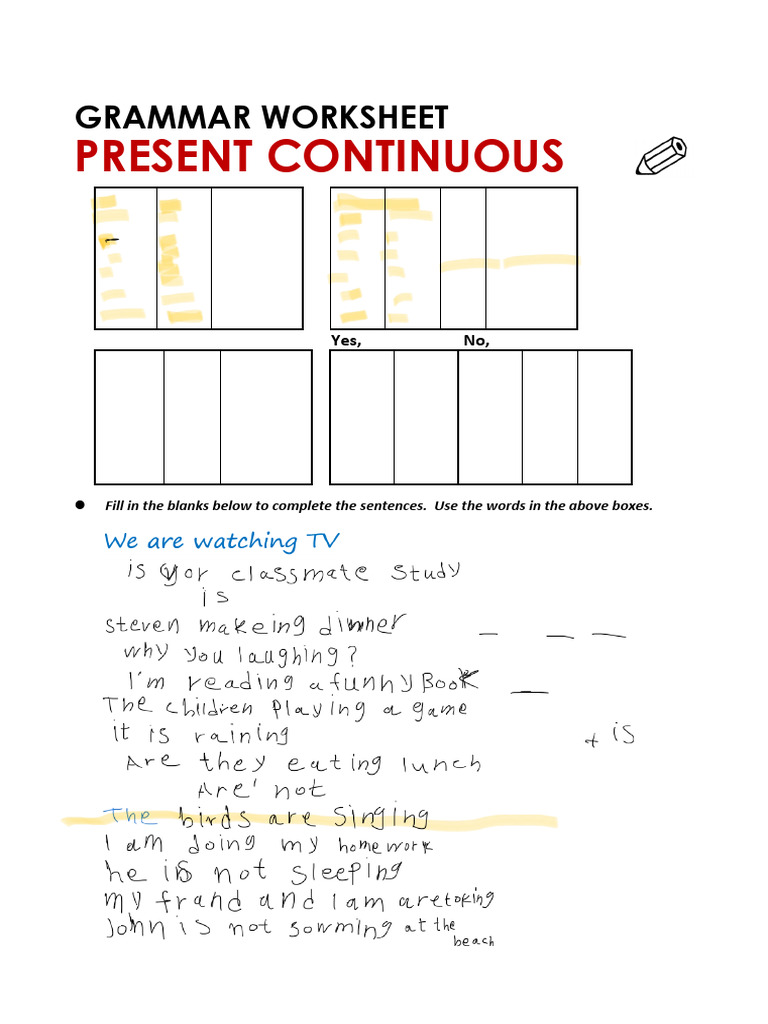 GRAMMAR WORKSHEET
PRESENT CONTINUOUS
Yes, No,
● Fill in the blanks below to complete the sentences. Use the words in the above boxes.
We are watching TV
is yor classmate study
is
steven makeing dinner
why you laughing?
I'm reading a funny Book
The children Playing a game
it is raining
is
Are they eating lunch
Are' not
The birds are Singing
I am doing my homework
he is not sleeping
my frand and I am are toking
John is not sowming at the
beach